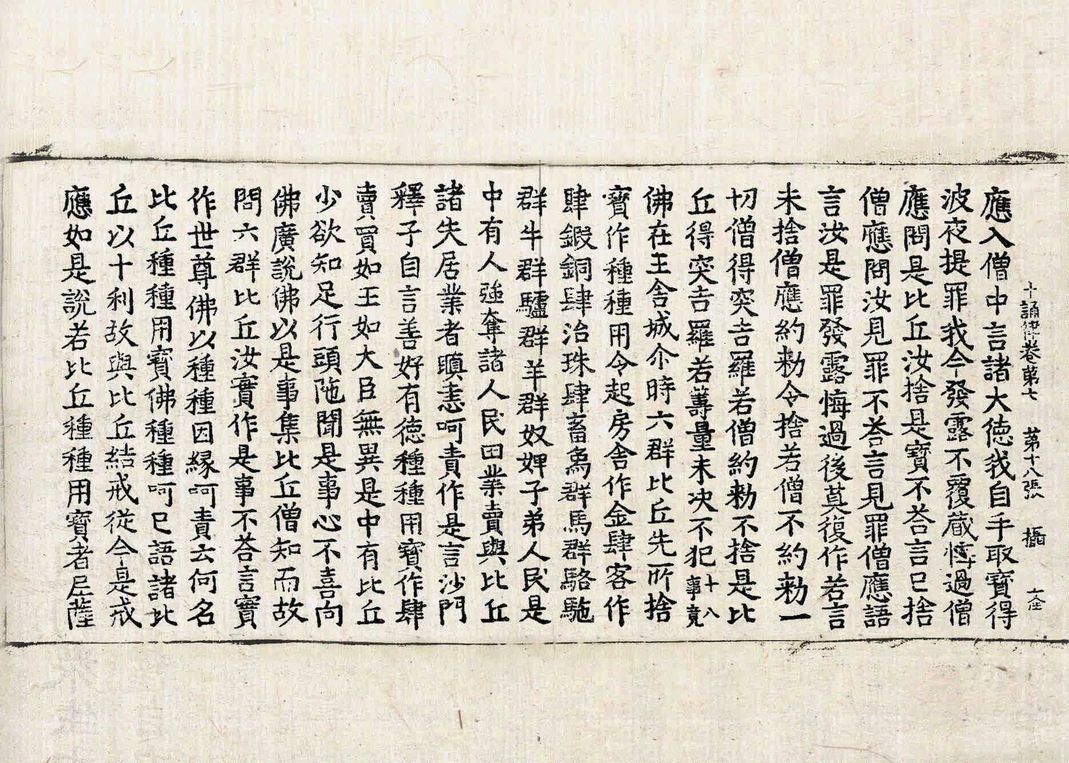 應入僧中言諸大德我自手取寶得
波夜提罪我今發露不覆藏悔過僧
十誦律卷第七 第十八張 楹
應問是比丘汝捨是寶不荅言已捨
僧應問汝見罪不荅言見罪僧應語
言汝是罪發露悔過後莫復作若言
未捨僧應約勑令捨若僧不約勑一
切僧得突吉羅若僧約勑不捨是比
丘得突吉羅若籌量未決不犯十八事竟
佛在王舍城尒時六群比丘先所捨
寶作種種用令起房舍作金肆客作
肆鍛銅肆治珠肆畜象群馬群駱駞
群牛群驢群羊群奴婢子弟人民是
中有人強奪諸人民田業賣與比丘
諸失居業者瞋恚呵責作是言沙門
釋子自言善好有德種種用寶作肆
賣買如王如大臣無異是中有比丘
少欲知足行頭陁聞是事心不喜向
佛廣說佛以是事集比丘僧知而故
問六群比丘汝實作是事不荅言實
作世尊佛以種種因緣呵責云何名
比丘種種用寶佛種種呵已語諸比
丘以十利故與比丘結戒從今是戒
應如是說若比丘種種用寶者尼薩